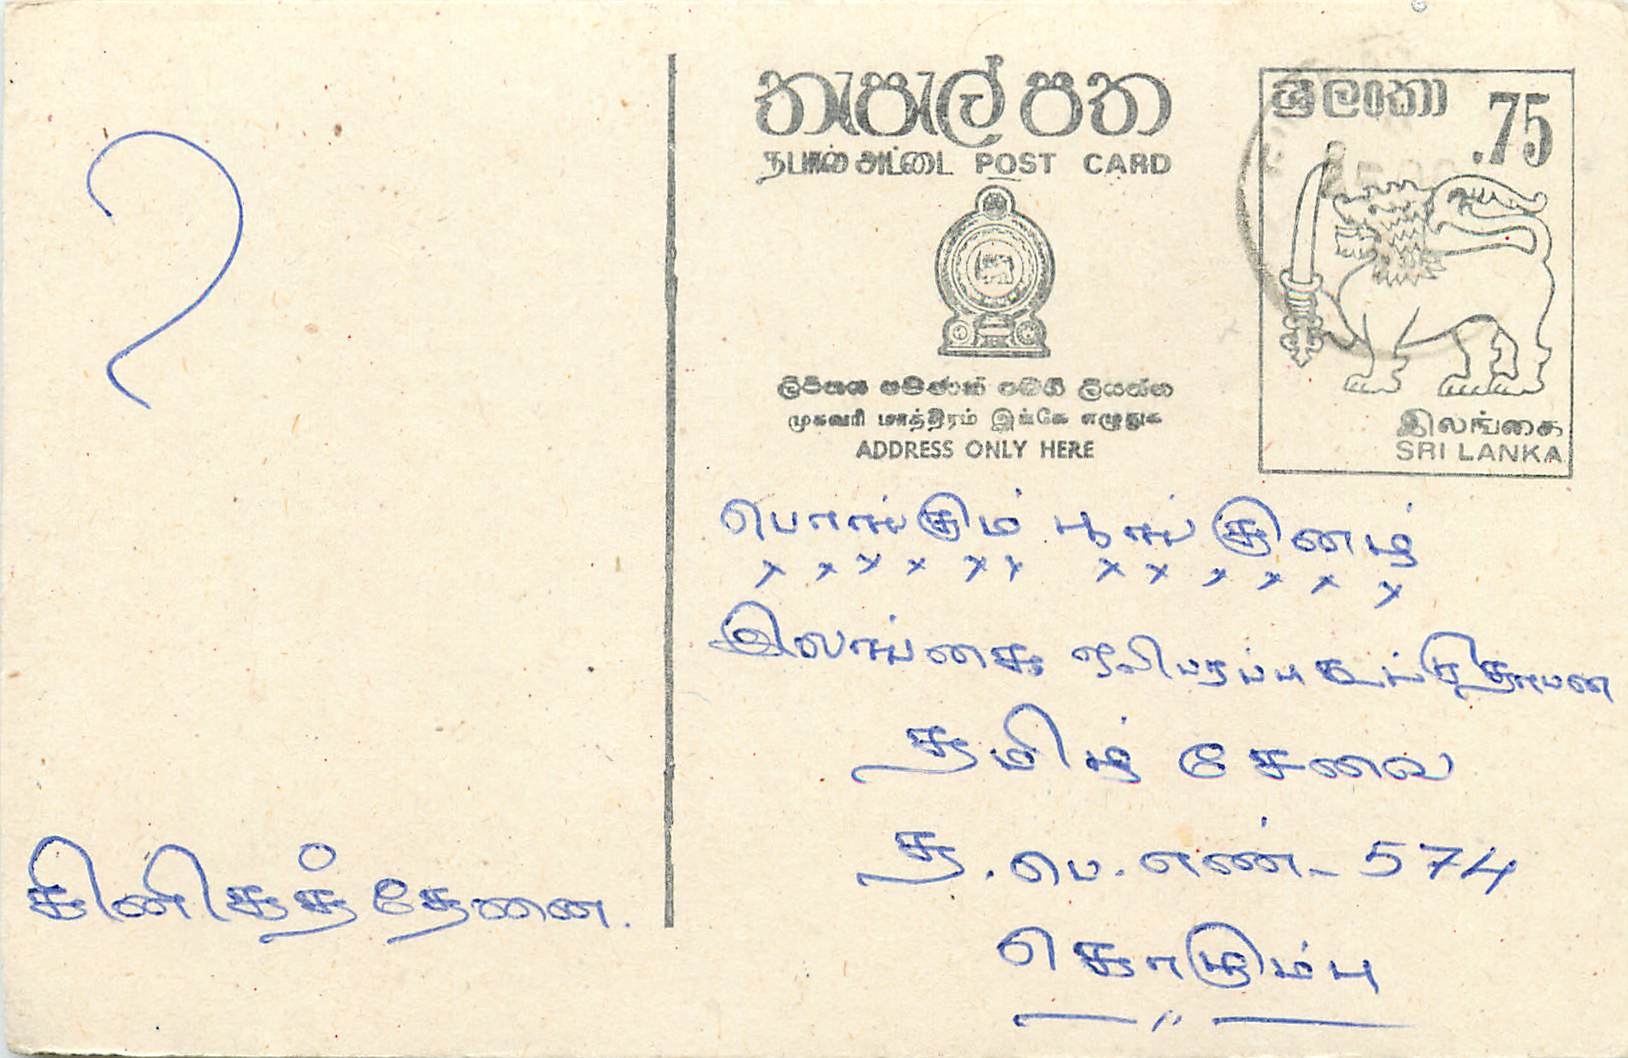 තැපැල් පත
தபால் அட்டை POST CARD
ශ්‍රී ලංකා
.75
ලිපිනය පමණක් මෙහි ලියන්න
முகவரி மாத்திரம் இங்கே எழுதுக
ADDRESS ONLY HERE
இலங்கை
SRI LANKA
பொங்கும் பூங்குனழ்
இலங்கை ஒலிபரப்பு கூட்டுதாபன
தமிழ் சேவை
த.பெ.எண்- 574
கொழும்பு
கினிகத்தேனை.